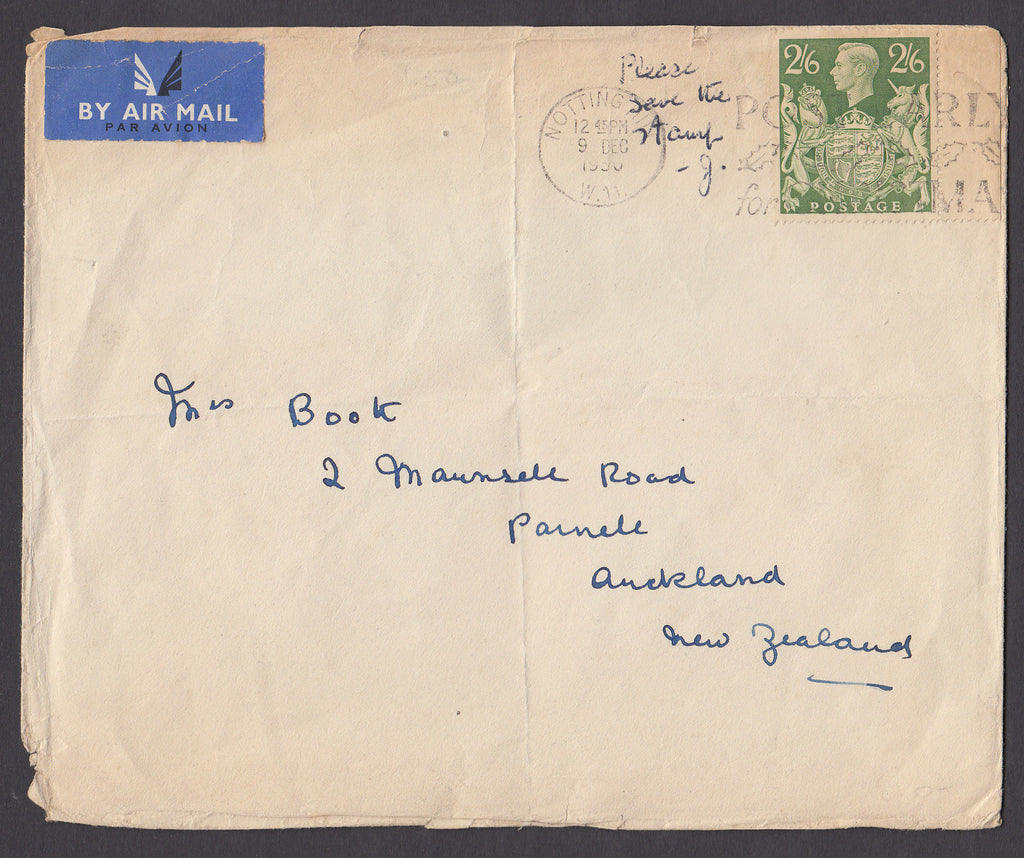 BY AIR MAIL
PAR AVION
NOTTING
12 45 PM
9 DEC
W.11.
Please
save the
stamp
- J.
2/6 2/6
POSTAGE
PO RLY
for MA
Mrs Book
2 Maunsell Road
Parnell
Auckland
New Zealand